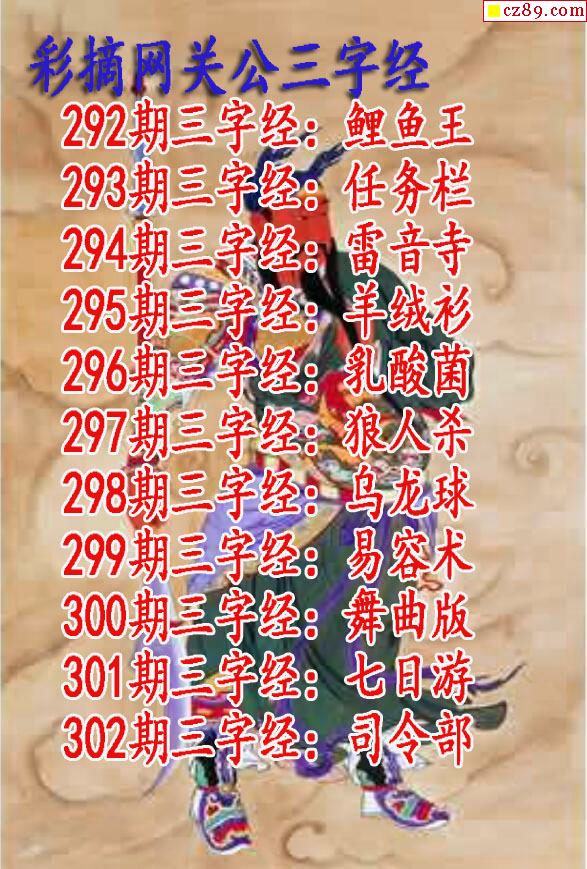 cz89.com
彩摘网关公三字经
292期三字经：鲤鱼王
293期三字经：任务栏
294期三字经：雷音寺
295期三字经：羊绒衫
296期三字经：乳酸菌
297期三字经：狼人杀
298期三字经：乌龙球
299期三字经：易容术
300期三字经：舞曲版
301期三字经：七日游
302期三字经：司令部